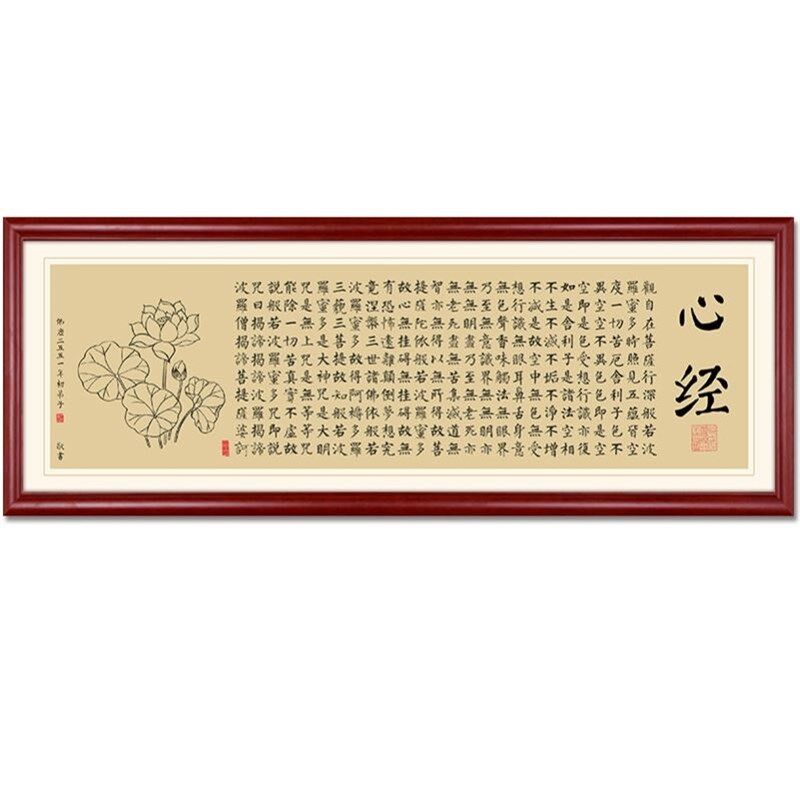 心经
觀自在菩薩行深般若波
羅蜜多時照見五蘊皆空
度一切苦厄舍利子色不
異空空不異色色即是空
空即是色受想行識亦復
如是舍利子是諸法空相
不生不滅不垢不淨不增
不減是故空中無色無受
想行識無眼耳鼻舌身意
無色聲香味觸法無眼界
乃至無意識界無無明亦
無無明盡乃至無老死亦
無老死盡無苦集滅道無
智亦無得以無所得故菩
提薩陀依般若波羅蜜多
故心無挂碍無挂碍故無
有恐怖遠離顛倒夢想究
竟涅槃三世諸佛依般若
波羅蜜多故得阿耨多羅
三藐三菩提故知般若波
羅蜜多是大神咒是大明
咒是無上咒是無等等咒
能除一切苦真實不虛故
說般若波羅蜜多咒即說
咒曰揭諦揭諦波羅揭諦
波羅僧揭諦菩提薩婆訶
二五五一年初弟子 敬書